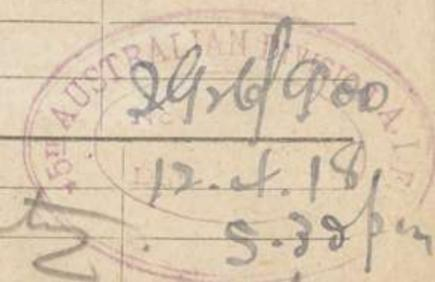 5TH AUSTRALIAN DIVISION A.I.F.
2926/900
12.4.18
5.30 pm